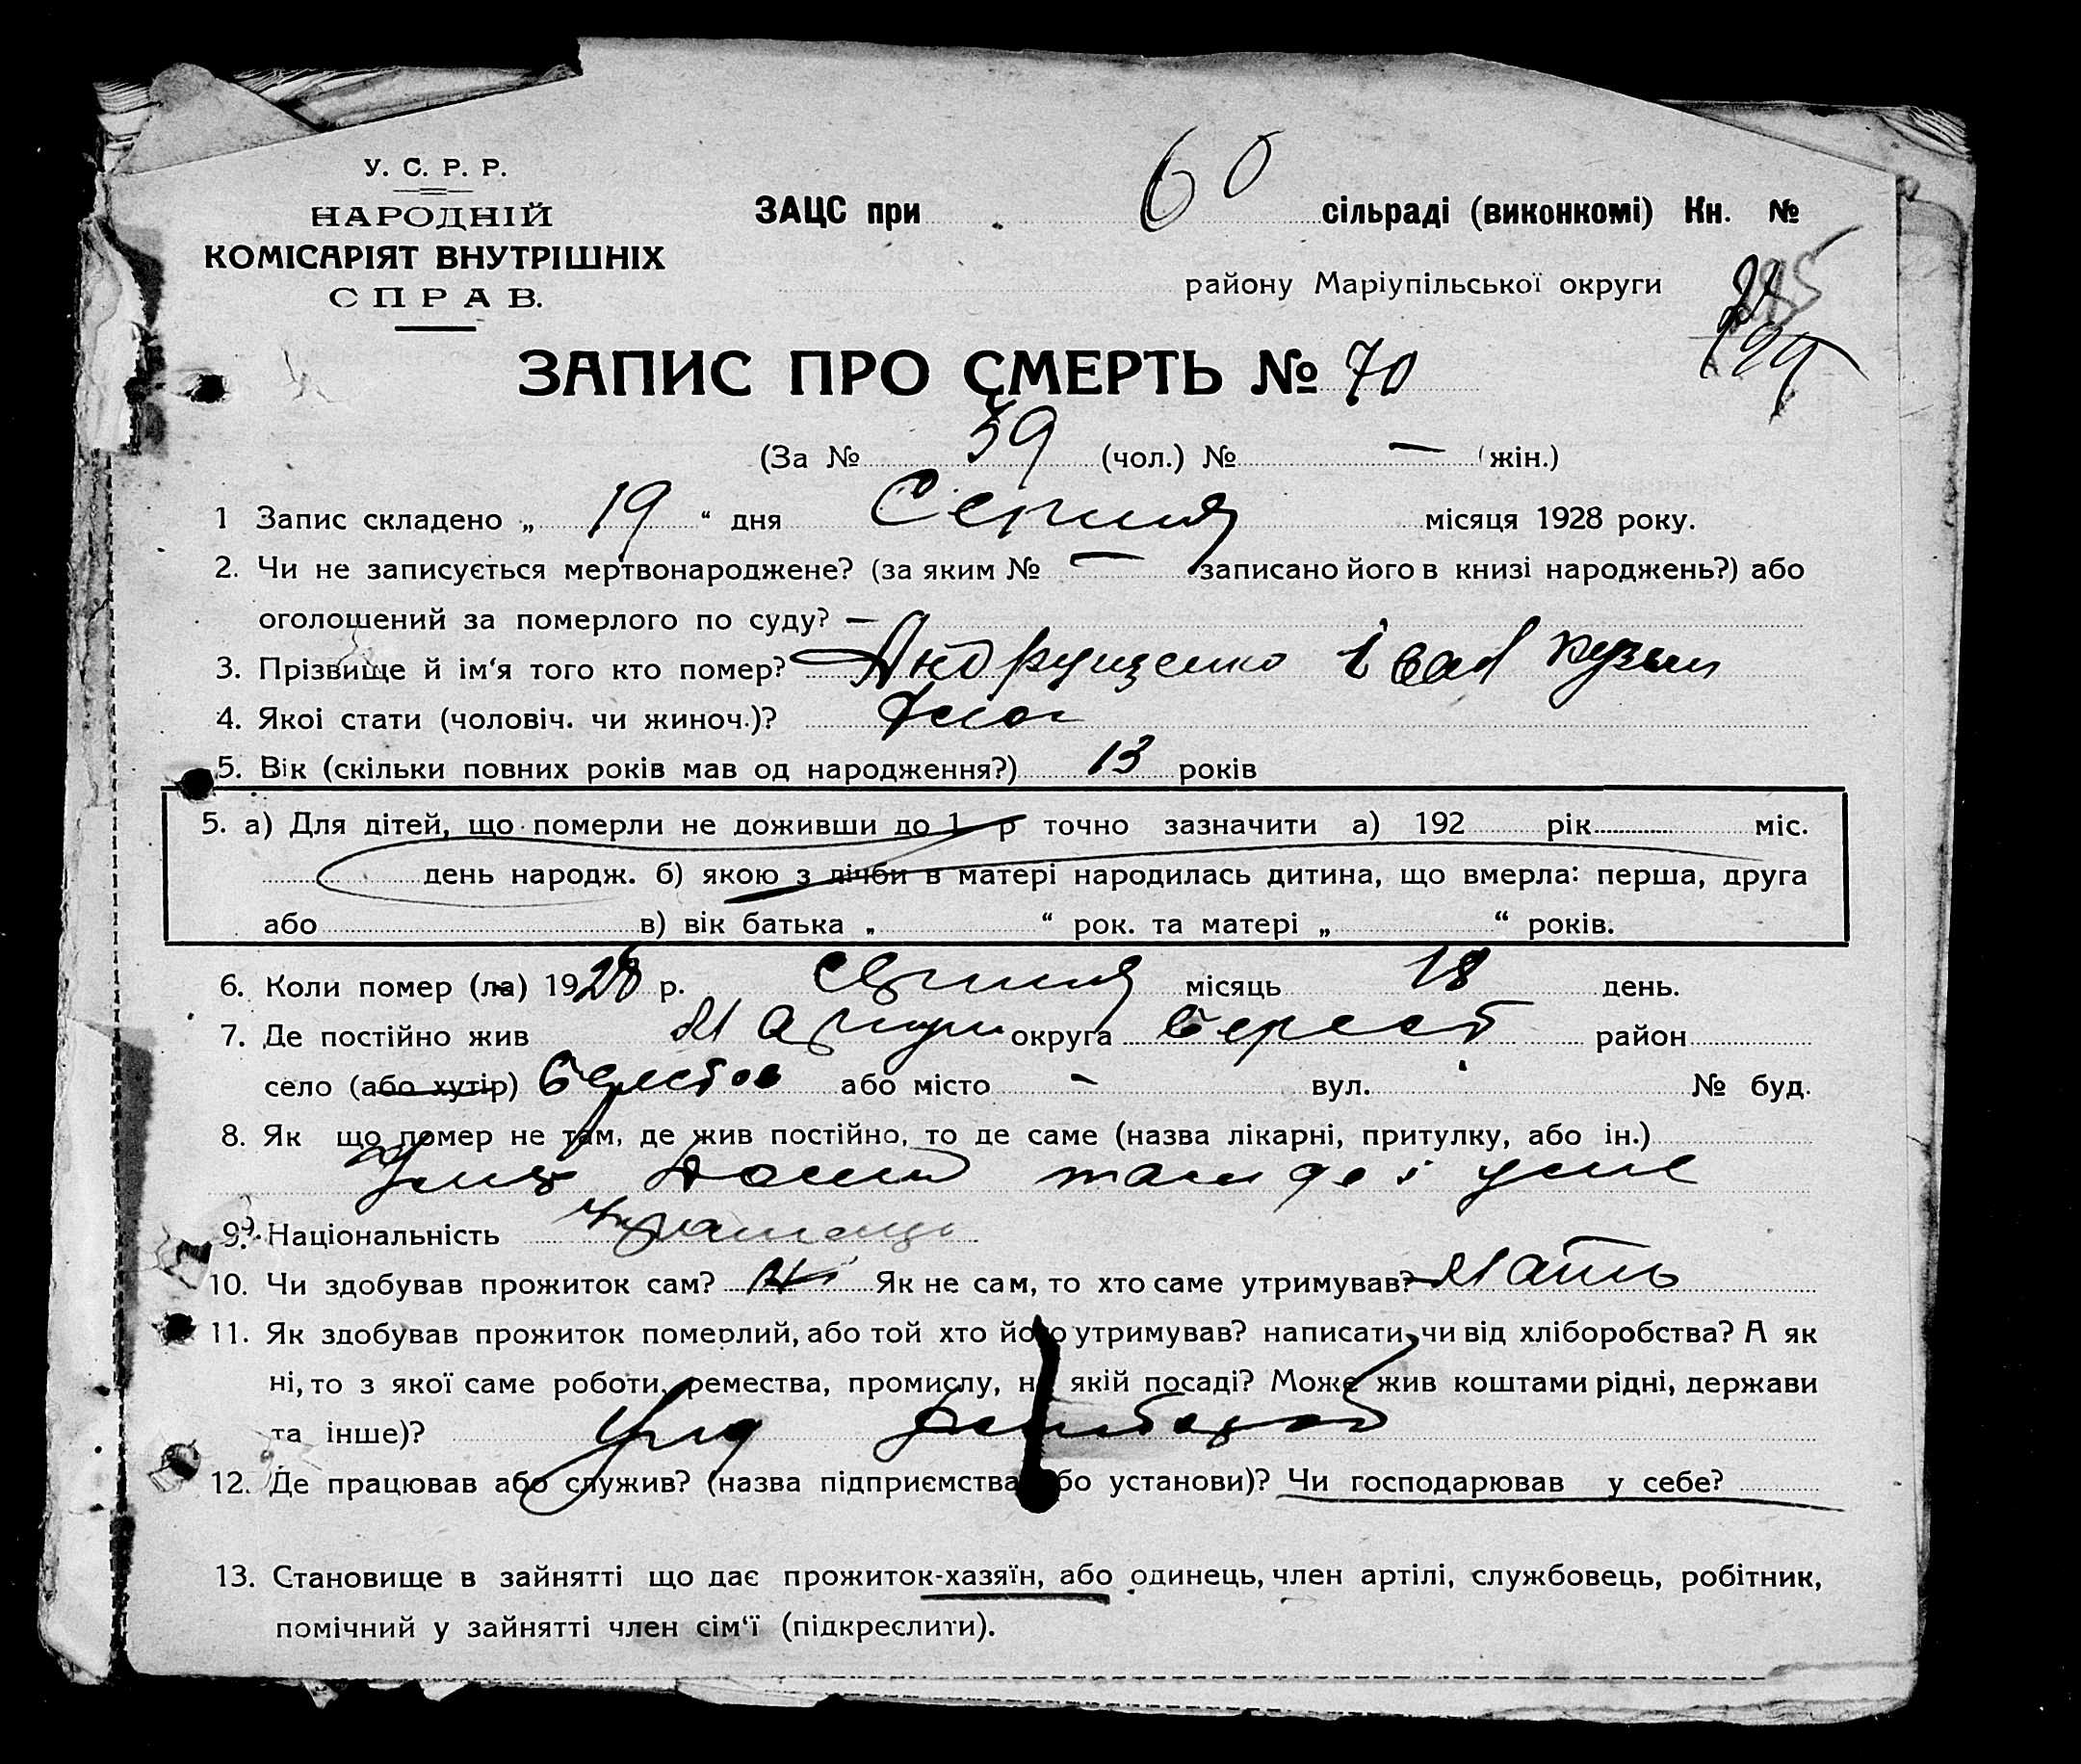 У. С. Р. Р.
НАРОДНІЙ
КОМІСАРІЯТ ВНУТРІШНІХ
СПРАВ.
ЗАЦС при 60 сільраді (виконкомі) Кн. №
району Маріупільської округи
199
ЗАПИС ПРО СМЕРТЬ № 70
(За № 39 (чол.) № — (жін.)
1 Запис складено „ 19 “ дня Серпня місяця 1928 року.
2. Чи не записується мертвонароджене? (за яким № — записано його в книзі народжень?) або
оголошений за померлого по суду? —
3. Прізвище й ім‘я того кто помер? Андрущенко Іван Кузьм
4. Якоі стати (чоловіч. чи жиноч.)? Чолов
5. Вік (скільки повних років мав од народження?) 13 років
5. а) Для дітей, що померли не доживши до 1 р точно зазначити а) 192 рік міс.
день народж. б) якою з лічби в матері народилась дитина, що вмерла: перша, друга
або в) вік батька „ “ рок. та матері „ “ років.
6. Коли помер (ла) 1928 р. Серпня місяць 18 день.
7. Де постійно жив Маріуп округа Берест район
село (або хутір) Берестов або місто - вул. № буд.
8. Як що помер не там, де жив постійно, то де саме (назва лікарні, притулку, або ін.)
там де і
9. Національність Українець
10. Чи здобував прожиток сам? Ні Як не сам, то хто саме утримував? Мать
11. Як здобував прожиток померлий, або той хто його утримував? написати, чи від хліборобства? А як
ні, то з якої саме роботи, ремества, промислу, на якій посаді? Може жив коштами рідні, держави
та інше)?
12. Де працював або служив? (назва підприємства або установи)? Чи господарював у себе?
13. Становище в зайнятті що дає прожиток-хазяїн, або одинець, член артілі, службовець, робітник,
помічний у зайнятті член сім‘ї (підкреслити).